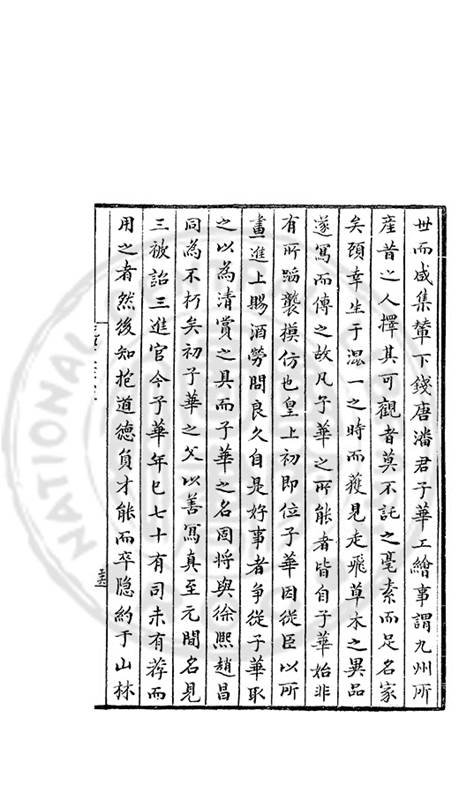 世而咸集輦下錢唐潘君子華工繪事謂九州所
産昔之人擇其可觀者莫不託之毫素而足名家
矣頋幸生于混一之時而獲見走飛草木之異品
遂寫而傳之故凡子華之所能者皆自子華始非
有所蹈襲摸仿也皇上初即位子華因從臣以所
畫進上賜酒勞問良久自是好事者争從子華取
之以為清賞之具而子華之名固將與徐熙趙昌
同為不朽矣初子華之父以善寫真至元間名見
三被詔三進官今子華年已七十有司未有荐而
用之者然後知抱道德負才能而卒隐約于山林
NATIONAL